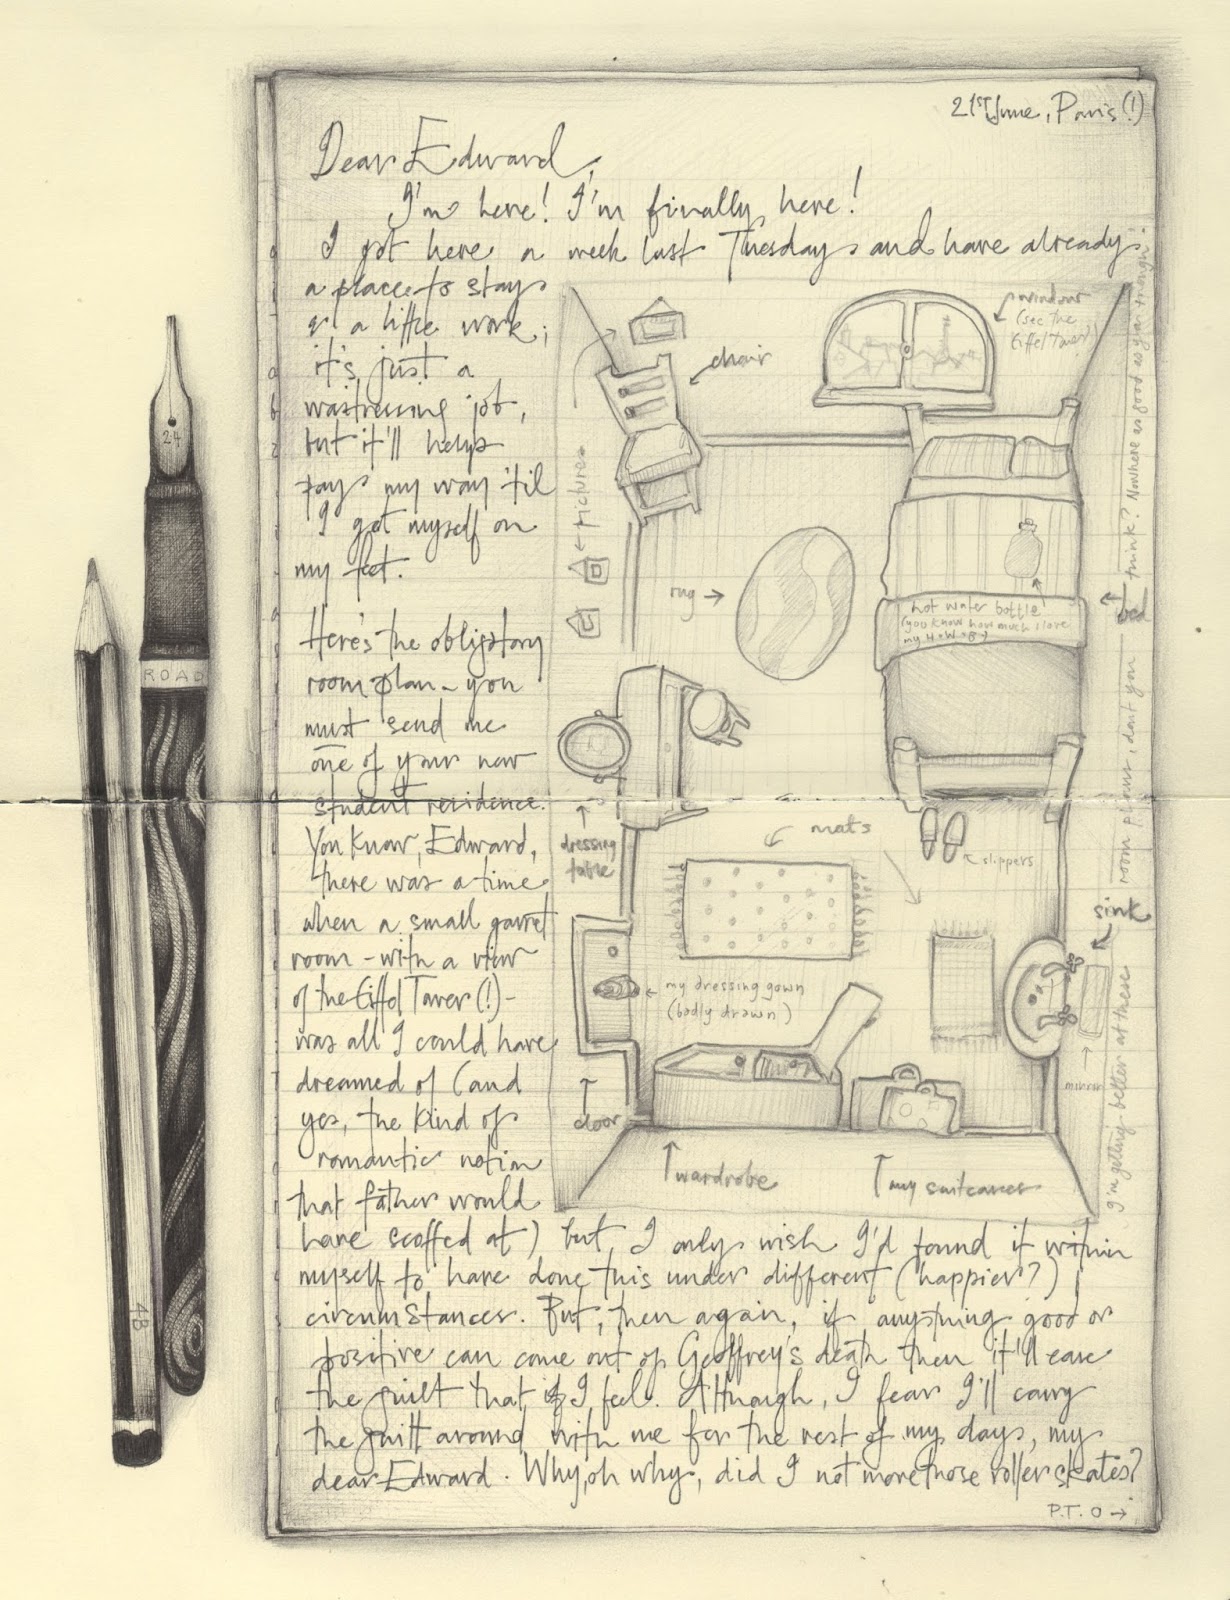 21ST June, Paris (!)
Dear Edward,
I'm here! I'm finally here!
I got here a week last Tuesday and have already
a place to stay
& a little work;
it's just a
waitressing job,
but it'll help
pay my way 'til
I get myself on
my feet.
Here's the obligatory
room plan - you
must send me
one of your new
student residence.
You know, Edward,
there was a time
when a small garret
room - with a view
of the Eiffel Tower (!) -
was all I could have
dreamed of (and
yes, the kind of
romantic notion
that father would
have scoffed at) but, I only wish I'd found it within
myself to have done this under different (happier?)
circumstances. But, then again, if anything good or
positive can come out of Geoffrey's death then it'll ease
the guilt that I feel. Although, I fear I'll carry
the guilt around with me for the rest of my days, my
dear Edward. Why, oh why, did I not move those roller skates?
P.T.O →
window
(see the
Eiffel Tower)
chair
pictures
rug →
hot water bottle
(you know how much I love
my H.W.B)
bed
dressing
table
mats
slippers
sink
mirror
my dressing gown
(badly drawn)
door
wardrobe
my suitcases
I'm getting better at these room plans, don't you think? Nowhere as good as you though.
24
ROAD
4B